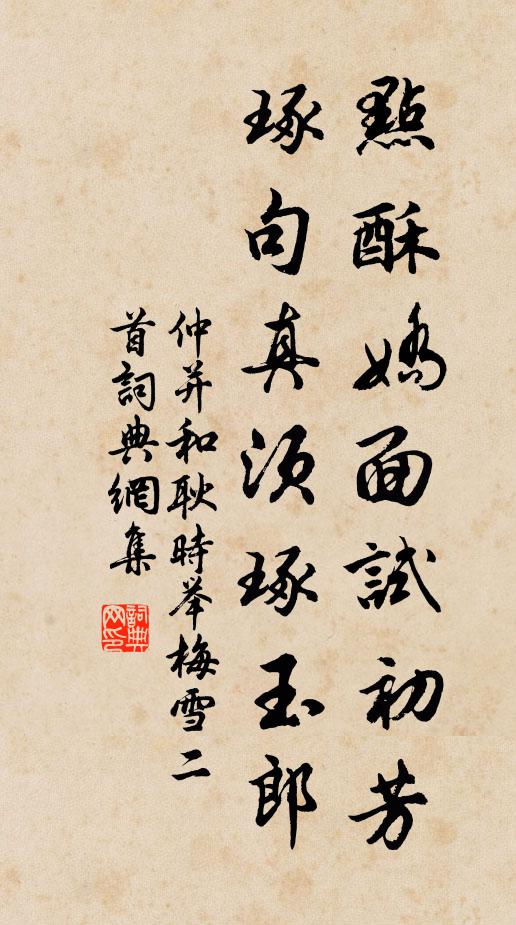 點酥嬌面試初芳
琢句真須琢玉郎
仲并和耿時举梅雪二
首詞典網集
詞典網印